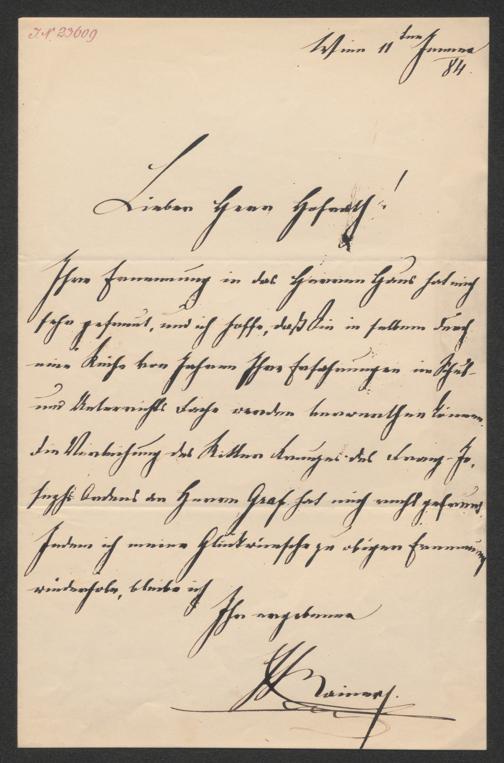 J.N. 23609
Wien 11ten Jänner
84.
Lieber Herr Hofrath!
Ihre Ernennung in das Herren Haus hat mich
sehr gefreut, und ich hoffe, daß Sie in selbem durch
eine Reihe von Jahren Ihre Erfahrungen im Schul-
und Unterrichts Fache werden verwerthen können.
Die Verleihung des Ritter Kreuzes des Franz-Jo-
sephs Ordens an Herrn Graf hat mich recht gefreut
Indem ich meine Glückwünsche zu obiger Ernennung
wiederhole, bleibe ich
Ihr ergebener
Rainer.